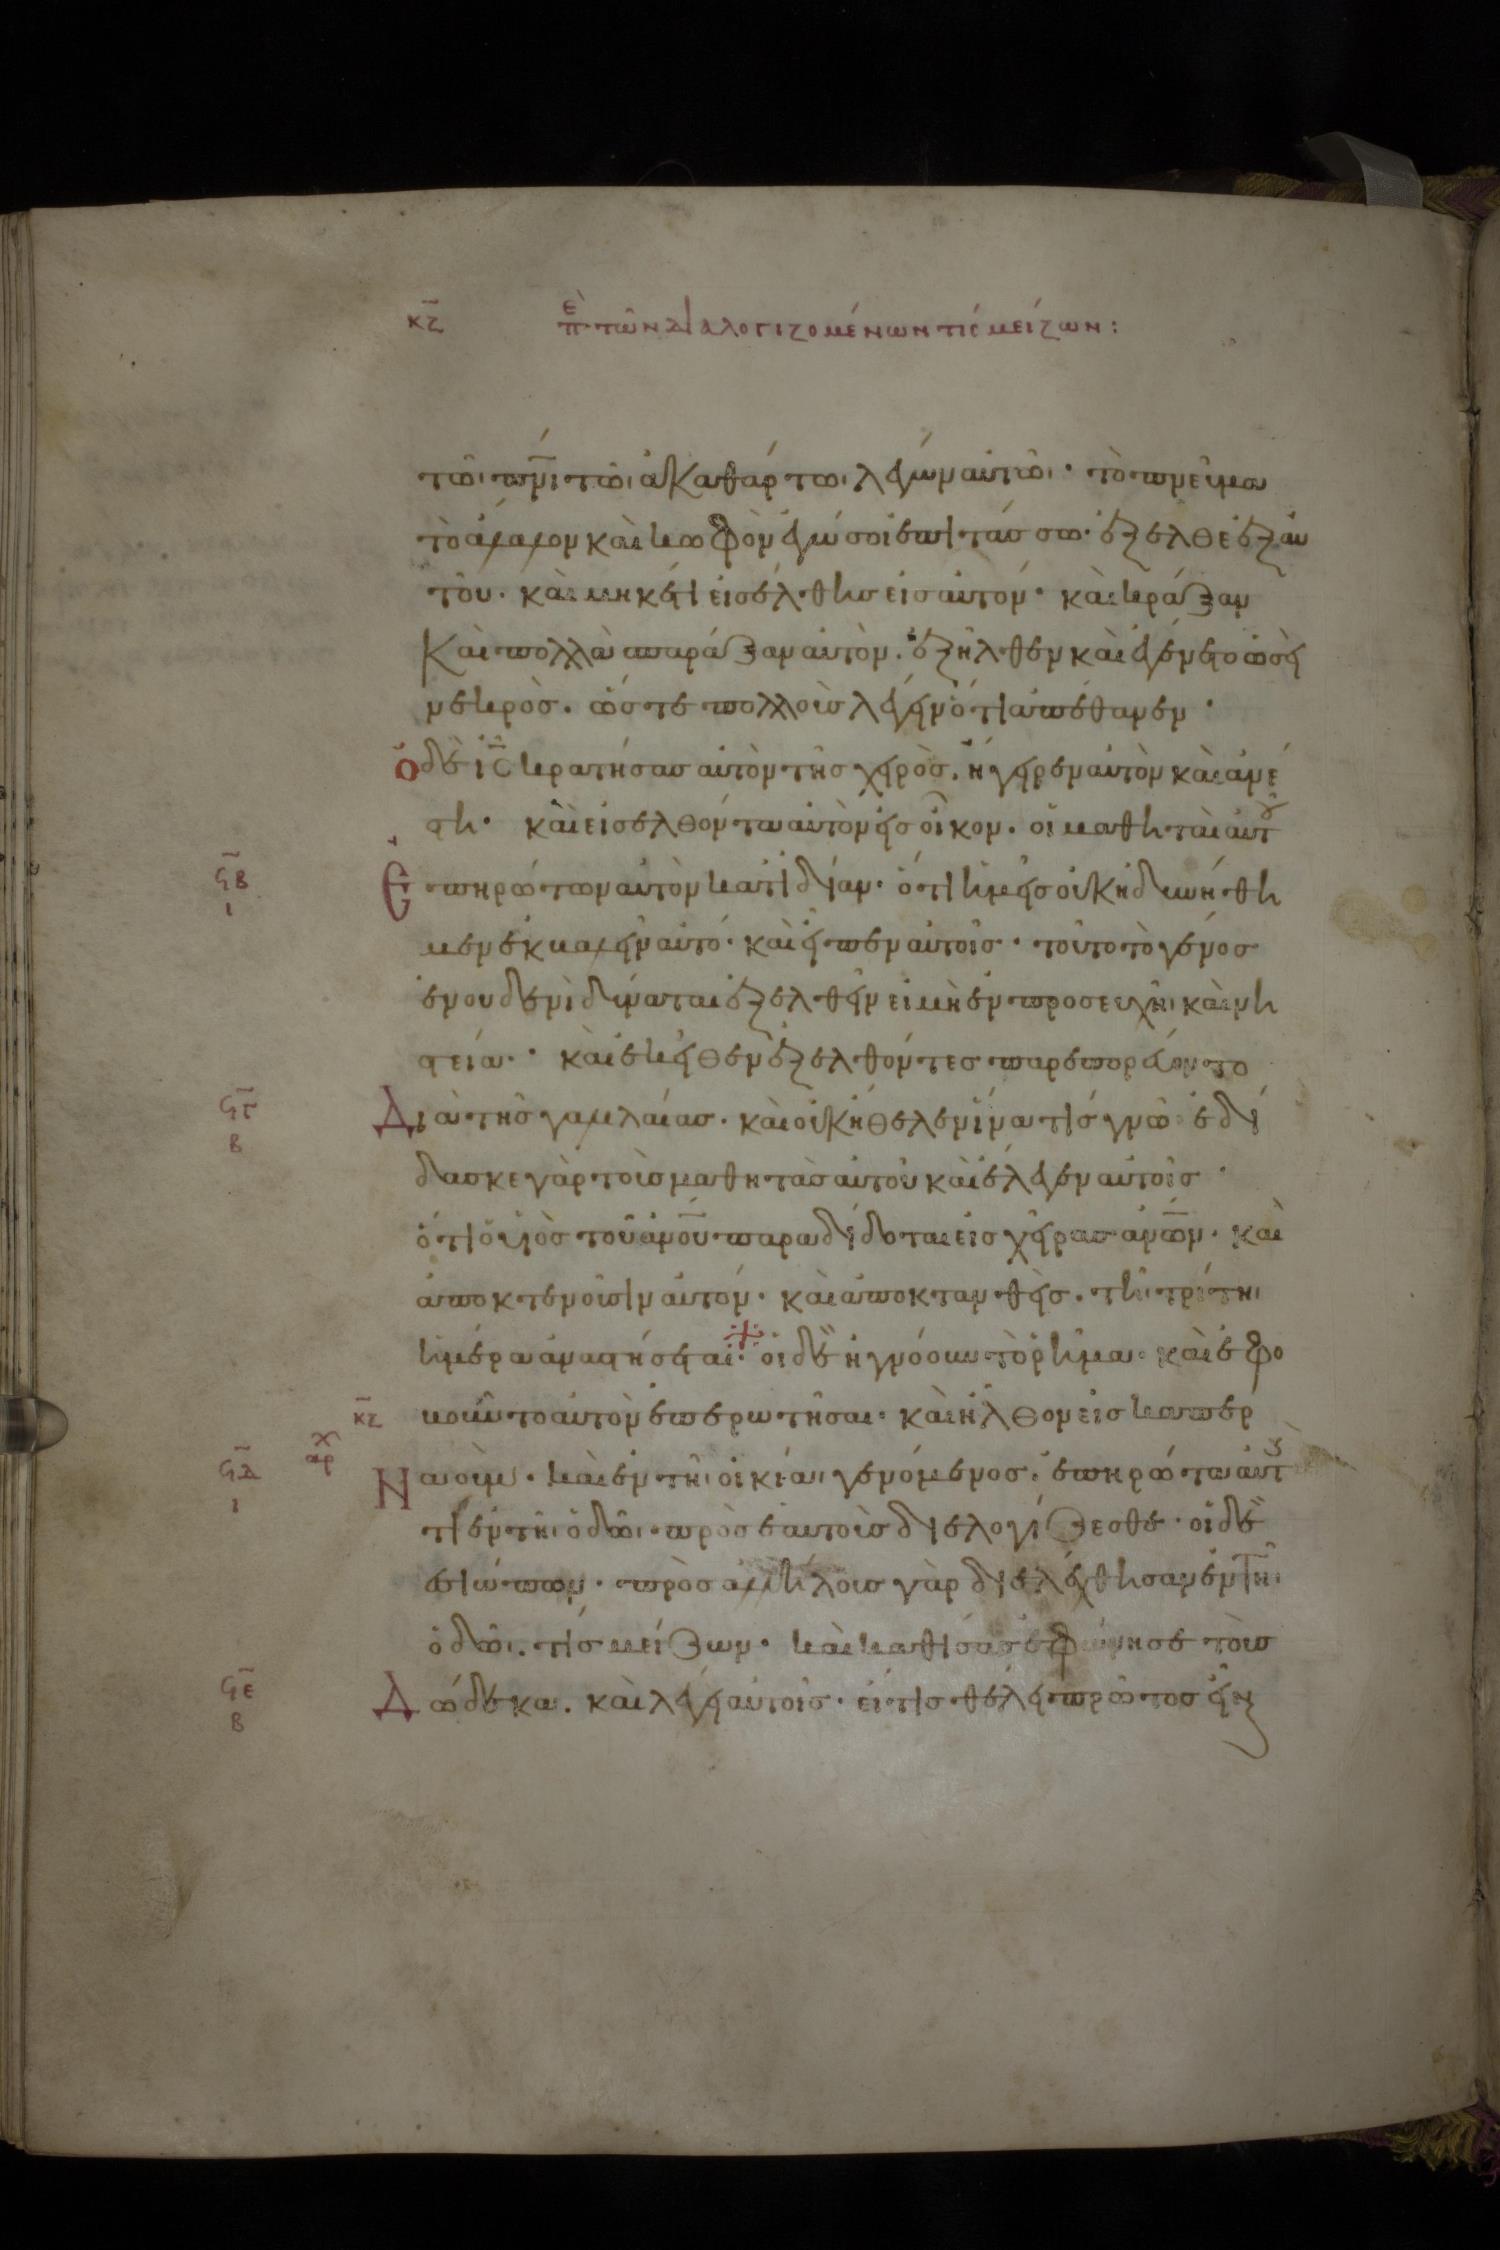 κζ ἐπὶ τῶν διαλογιζομένων τίς μείζων:
τῶι πνι τῶι ἀκαθάρτωι λέγων αὐτῶι· τὸ πνεῦμα
τὸ ἄλαλον καὶ κωφὸν ἐγώ σοι ἐπιτάσσω· ἔξελθε ἐξ αυ
τοῦ· καὶ μηκέτι εἰσέλθης εἰς αὐτόν· καὶ κράξαν
καὶ πολλὰ σπαράξαν αὐτὸν· ἐξῆλθεν καὶ ἐγένετο ὡσεὶ
νεκρὸς· ὥστε πολλοὺς λέγειν ὅτι ἀπέθανεν·
ὁ δὲ ις κρατήσας αὐτὸν τῆς χειρὸς· ἤγειρεν αὐτὸν καὶ ἀνέ
στη· καὶ εἰσελθόντα αὐτὸν εἰς οἶκον· οἱ μαθηταὶ αὐτοῦ
ϟβ ι Ἐπηρώτων αὐτὸν κατιδίαν· ὅτι ἡμεῖς οὐκ ἠδυνήθη
μεν ἐκβαλεῖν αὐτό· καὶ εἶπεν αὐτοῖς· τοῦτο τὸ γένος
ἐν ουδενὶ δύναται ἐξελθεῖν εἰ μὴ ἐν προσευχῆι καὶ νη
στεία· καὶ ἐκεῖθεν ἐξελθόντες παρεπορεύοντο
ϟγ β Διὰ τῆς γαλιλαίας· καὶ οὐκ ἤθελεν ἵνα τίς γνῶ ἐδί
δασκε γὰρ τοὺς μαθητὰς αὐτοῦ καὶ ἔλεγεν αὐτοῖς·
ὅτι ὁ υἱὸς τοῦ ἀνου παραδίδοται εἰς χεῖρας ἀνων· καὶ
ἀποκτενοῦσιν αὐτόν· καὶ ἀποκτανθεὶς· τῆ τρίτηι
ἡμέρα ἀναστήσεται· οἱ δὲ ἠγνόουν τὸ ῥῆμα· καὶ ἐφο
κζ βοῦντο αὐτὸν ἐπερωτῆσαι· καὶ ἦλθον εἰς καπερ
ϟδ ι αρχ Ναοὺμ· καὶ ἐν τῆι οἰκίαι γενόμενος· ἐπηρώτα αὐτοὺ
τί ἐν τῆι ὁδῶι πρὸς ἑαυτοὺς διελογίζεσθε· οἱ δὲ
ἐσιώπων· πρὸς ἀλλήλους γὰρ διελέχθησαν ἐν τῆι
ὁδῶι· τίς μείζων· καὶ καθίσας ἐφώνησε τοὺς
ϟε β Δώδεκα· καὶ λέγει αὐτοῖς· εἴ τις θέλει πρῶτος εἶν